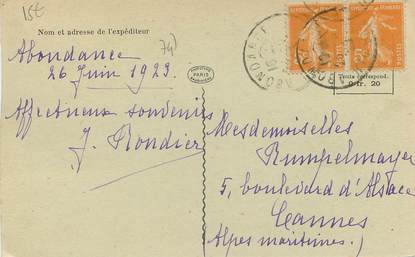 15€
Nom et adresse de l'expéditeur
74)
Abondance
26 Juin 1923.
Affectueux souvenirs
J. Rondier
PARIS
POSTES
POSTES
ABONDANCE
Texte correspond.
0 fr. 20
Mesdemoiselles
Rumpelmayer
5, boulevard d'Alsace
Cannes
(Alpes maritimes.)